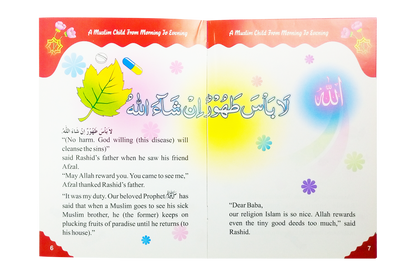 A Muslim Child From Morning To Evening
لَا بَأْسَ طَهُوْرٌ اِنْ شَآءَ اللّٰهُ
لَا بَأْسَ طَهُوْرٌ اِنْ شَآءَ اللّٰهُ
“(No harm. God willing (this disease) will
cleanse the sins)”
said Rashid's father when he saw his friend
Afzal.
“May Allah reward you. You came to see me,”
Afzal thanked Rashid's father.
“It was my duty. Our beloved Prophet ﷺ has
said that when a Muslim goes to see his sick
Muslim brother, he (the former) keeps on
plucking fruits of paradise until he returns (to
his house).”
6
A Muslim Child From Morning To Evening
اللّٰه
“Dear Baba,
our religion Islam is so nice. Allah rewards
even the tiny good deeds too much,” said
Rashid.
7